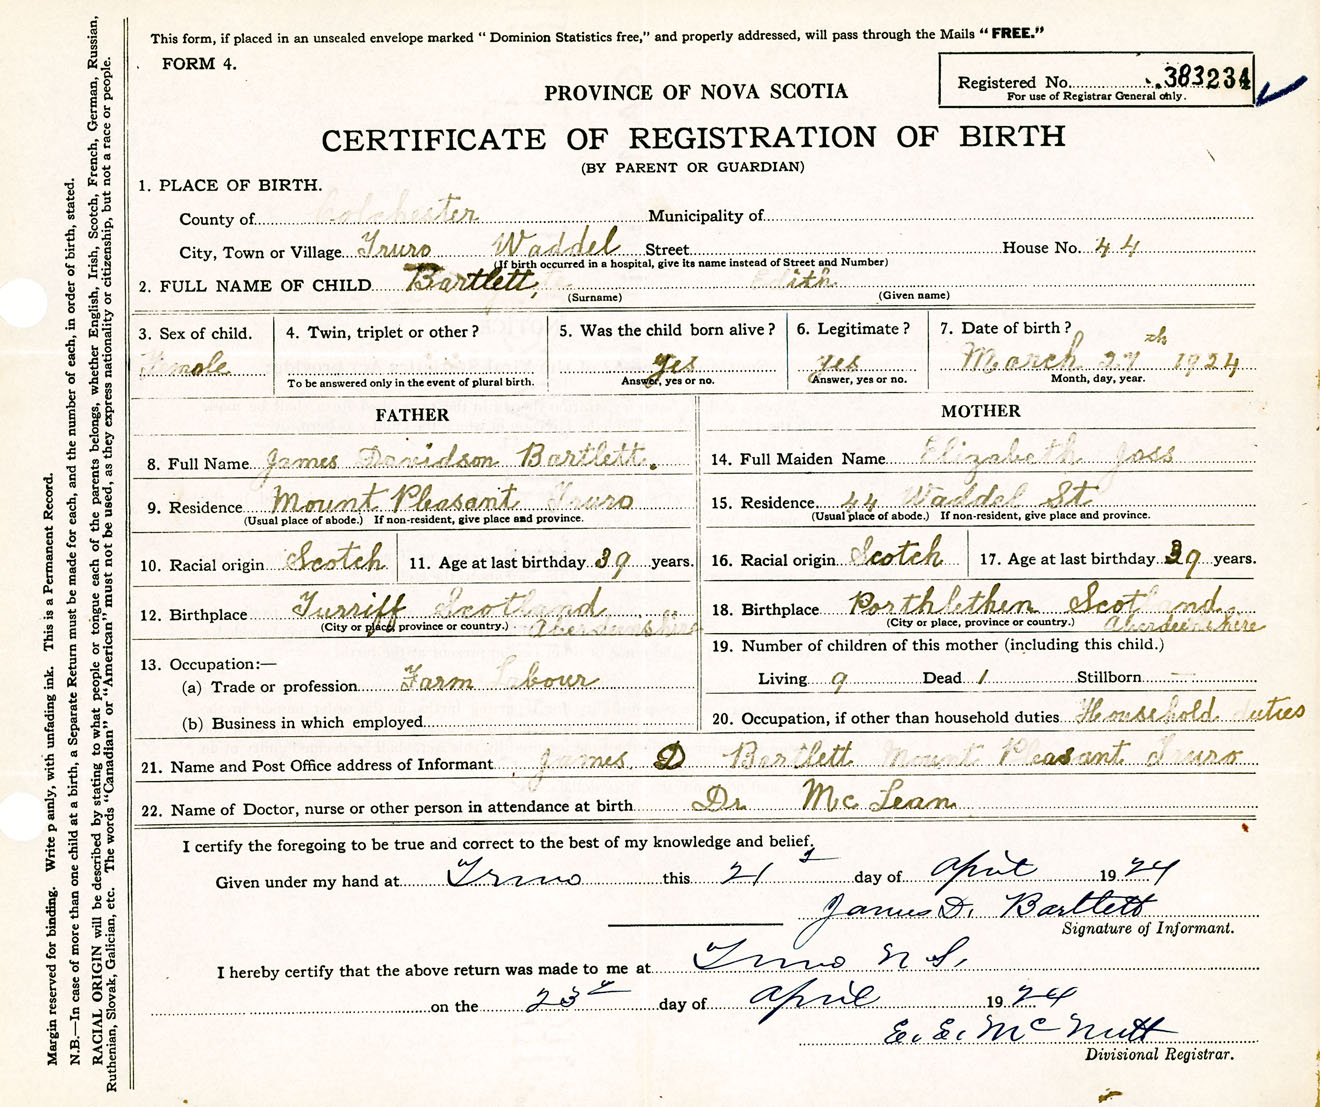 This form, if placed in an unsealed envelope marked "Dominion Statistics free," and properly addressed, will pass through the Mails "FREE."
FORM 4.
Registered No. 383234
For use of Registrar General only.
PROVINCE OF NOVA SCOTIA
CERTIFICATE OF REGISTRATION OF BIRTH
(BY PARENT OR GUARDIAN)
1. PLACE OF BIRTH.
County of Colchester Municipality of
City, Town or Village Truro Waddel Street House No. 44
(If birth occurred in a hospital, give its name instead of Street and Number)
2. FULL NAME OF CHILD Bartlett, Edith
(Surname) (Given name)
3. Sex of child. 4. Twin, triplet or other? 5. Was the child born alive? 6. Legitimate? 7. Date of birth?
Female yes yes March 27th 1924
To be answered only in the event of plural birth. Answer, yes or no. Answer, yes or no. Month, day, year.
FATHER MOTHER
8. Full Name James Davidson Bartlett. 14. Full Maiden Name Elizabeth Joss
9. Residence Mount Pleasant Truro 15. Residence 44 Waddel St.
(Usual place of abode.) If non-resident, give place and province. (Usual place of abode.) If non-resident, give place and province.
10. Racial origin Scotch 11. Age at last birthday 39 years. 16. Racial origin Scotch 17. Age at last birthday 39 years.
12. Birthplace Turriff Scotland 18. Birthplace Porthlethen Scotland.
(City or place, province or country.) Aberdeenshire (City or place, province or country.) Aberdeenshire
13. Occupation:— 19. Number of children of this mother (including this child.)
(a) Trade or profession Farm Labour Living 9 Dead 1 Stillborn —
(b) Business in which employed 20. Occupation, if other than household duties Household duties
21. Name and Post Office address of Informant James D Bartlett Mount Pleasant Truro
22. Name of Doctor, nurse or other person in attendance at birth Dr McLean
I certify the foregoing to be true and correct to the best of my knowledge and belief.
Given under my hand at Truro this 21 day of April 1924
James D. Bartlett
Signature of Informant.
I hereby certify that the above return was made to me at Truro N S.
on the 23 day of April 1924
E. E. McNutt
Divisional Registrar.
Margin reserved for binding. Write p ainly, with unfading ink. This is a Permanent Record.
N.B.—In case of more than one child at a birth, a Separate Return must be made for each, and the number of each, in order of birth, stated.
RACIAL ORIGIN will be described by stating to what people or tongue each of the parents belongs, whether English, Irish, Scotch, French, German, Russian,
Ruthenian, Slovak, Galician, etc. The words "Canadian" or "American" must not be used, as they express nationality or citizenship, but not a race or people.